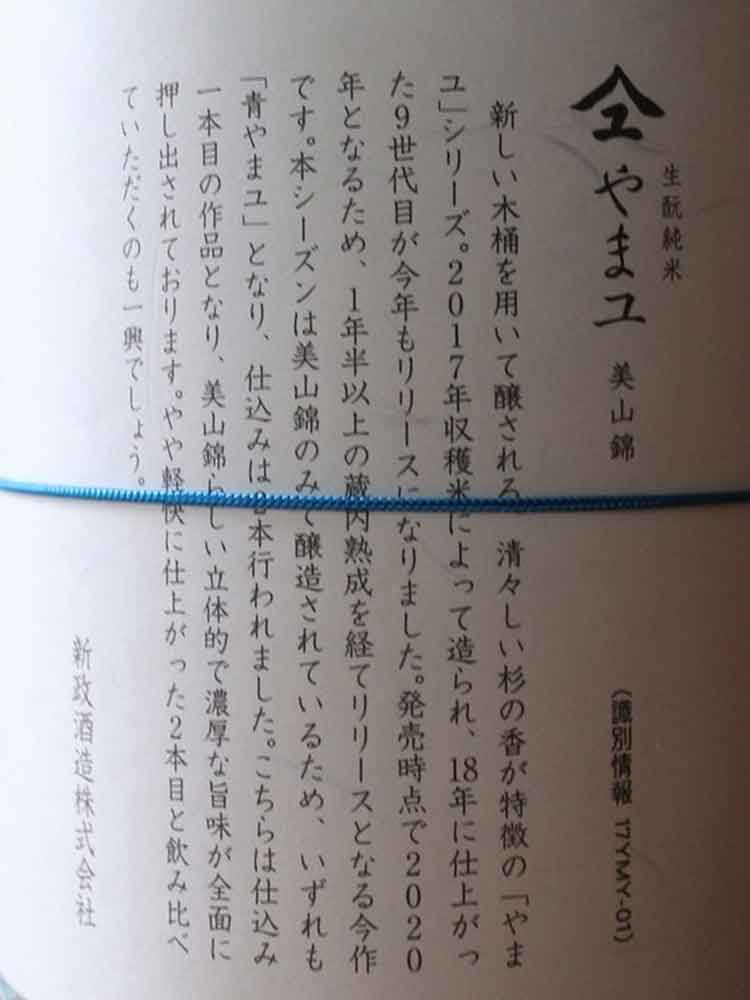 生酛純米
やまユ 美山錦 (識別情報 17YMY-01)
新しい木桶を用いて醸される、清々しい杉の香が特徴の「やま
ユ」シリーズ。2017年収穫米によって造られ、18年に仕上がっ
た9世代目が今年もリリースになりました。発売時点で2020
年となるため、1年半以上の蔵内熟成を経てリリースとなる今作
です。本シーズンは美山錦のみで醸造されているため、いずれも
「青やまユ」となり、仕込みは2本行われました。こちらは仕込み
一本目の作品となり、美山錦らしい立体的で濃厚な旨味が全面に
押し出されております。やや軽快に仕上がった2本目と飲み比べ
ていただくのも一興でしょう。
新政酒造株式会社